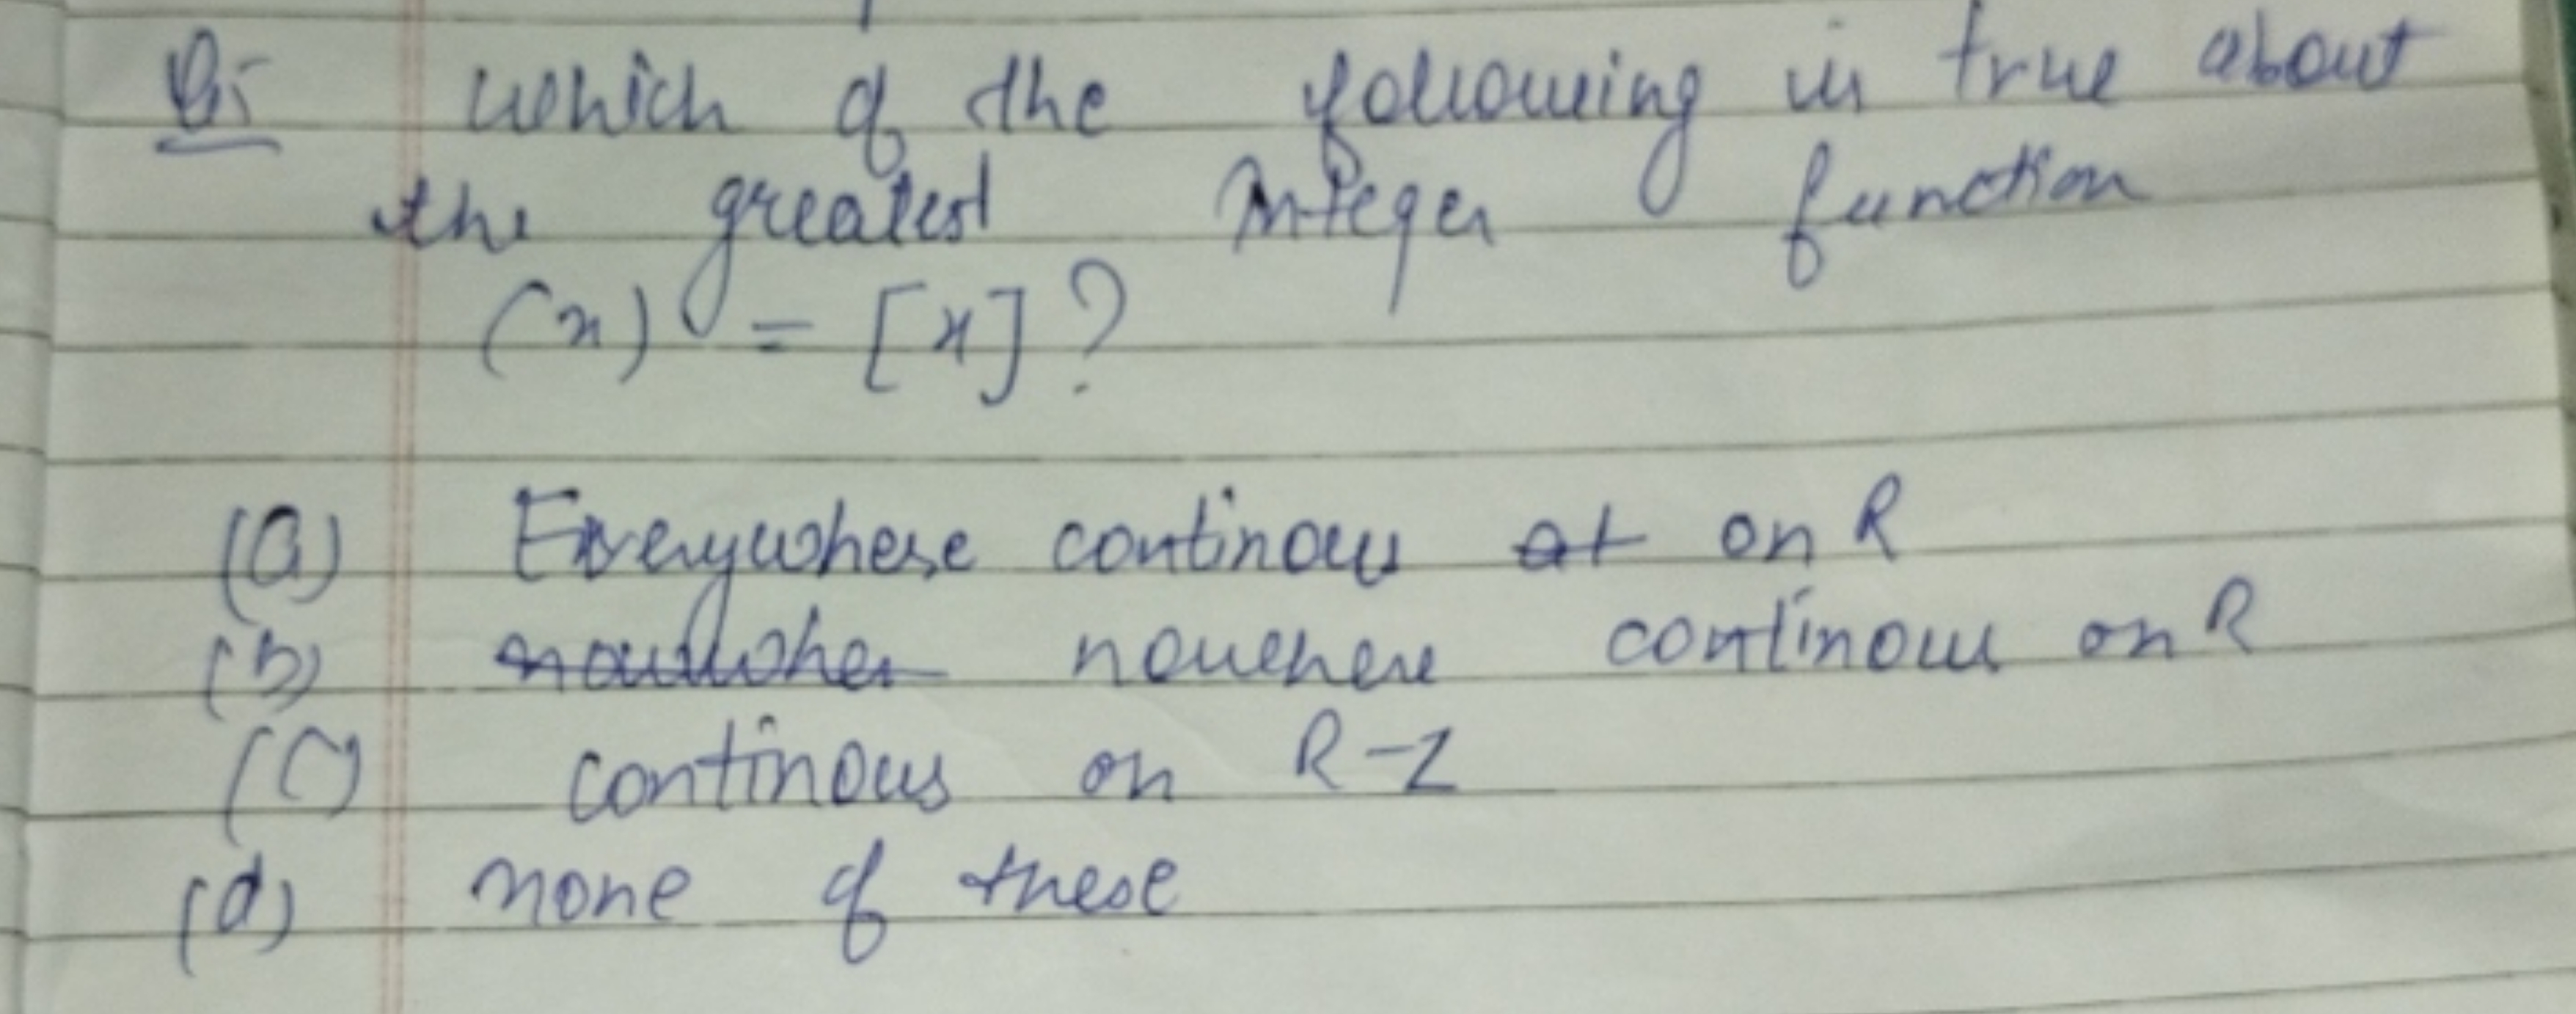 Q:- which of the following is true about
the greatest Integer function
(x) = [x]?
(a) Everywhere continous at on R
(b) nowhere continous on R
(c) continous on R-Z
(d) none of these